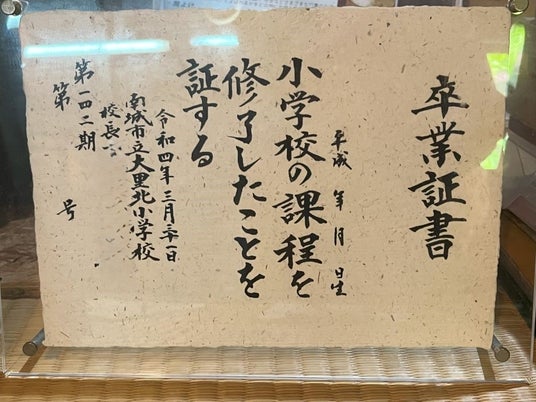 卒業証書
平成　年　月　日生
小学校の課程を
修了したことを
証する
令和四年三月二十一日
南城市立大里北小学校
校長
第一四二期
第　　号